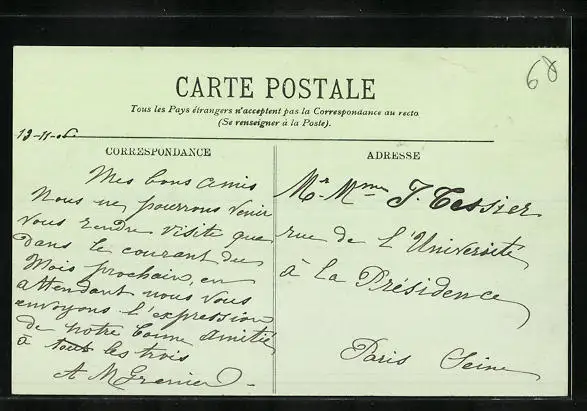 68
CARTE POSTALE
Tous les Pays étrangers n'acceptent pas la Correspondance au recto
(Se renseigner à la Poste).
13-11-06
CORRESPONDANCE
Mes bons amis
Nous ne pourrons venir
vous rendre visite que
dans le courant du
Mois prochain, en
attendant nous vous
envoyons l'expression
de notre bonne amitié
à tous les trois
A M Grenier
ADRESSE
Mr. Mme J. Tessier
rue de l'Université
à la Présidence
Paris Seine